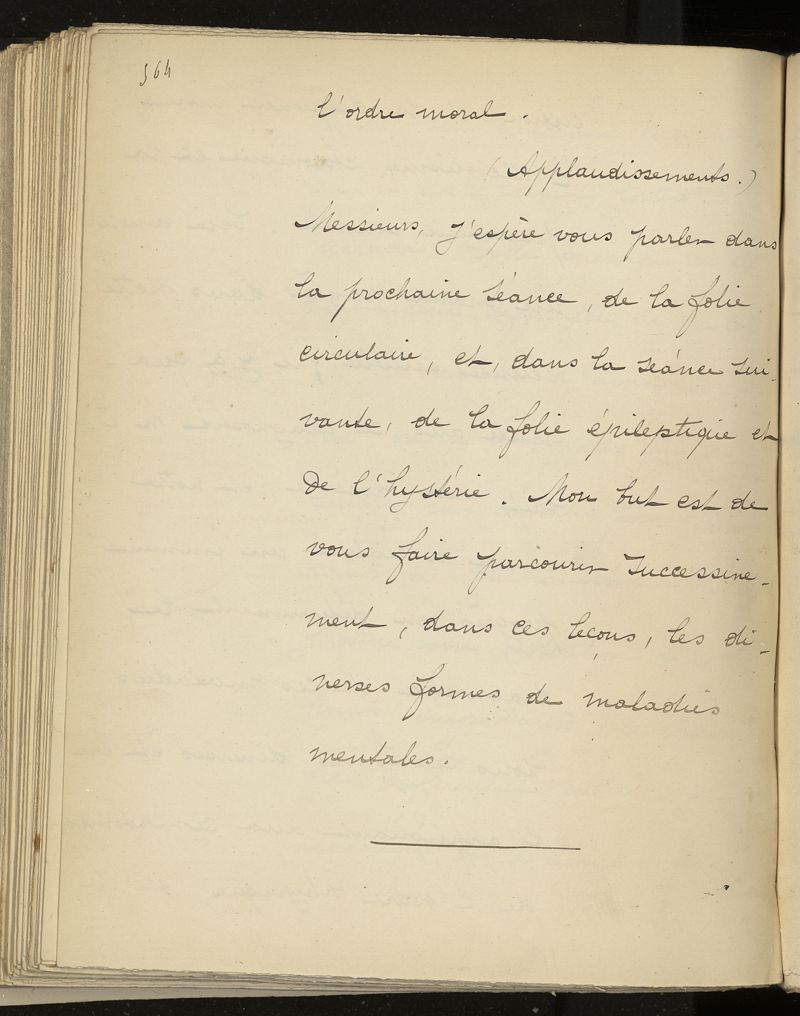 564
l'ordre moral.
(Applaudissements.)
Messieurs, j'espère vous parler dans
la prochaine séance, de la folie
circulaire, et, dans la séance sui-
vante, de la folie épileptique et
de l'hystérie. Mon but est de
vous faire parcourir successive-
ment, dans ces leçons, les di-
verses formes de maladies
mentales.